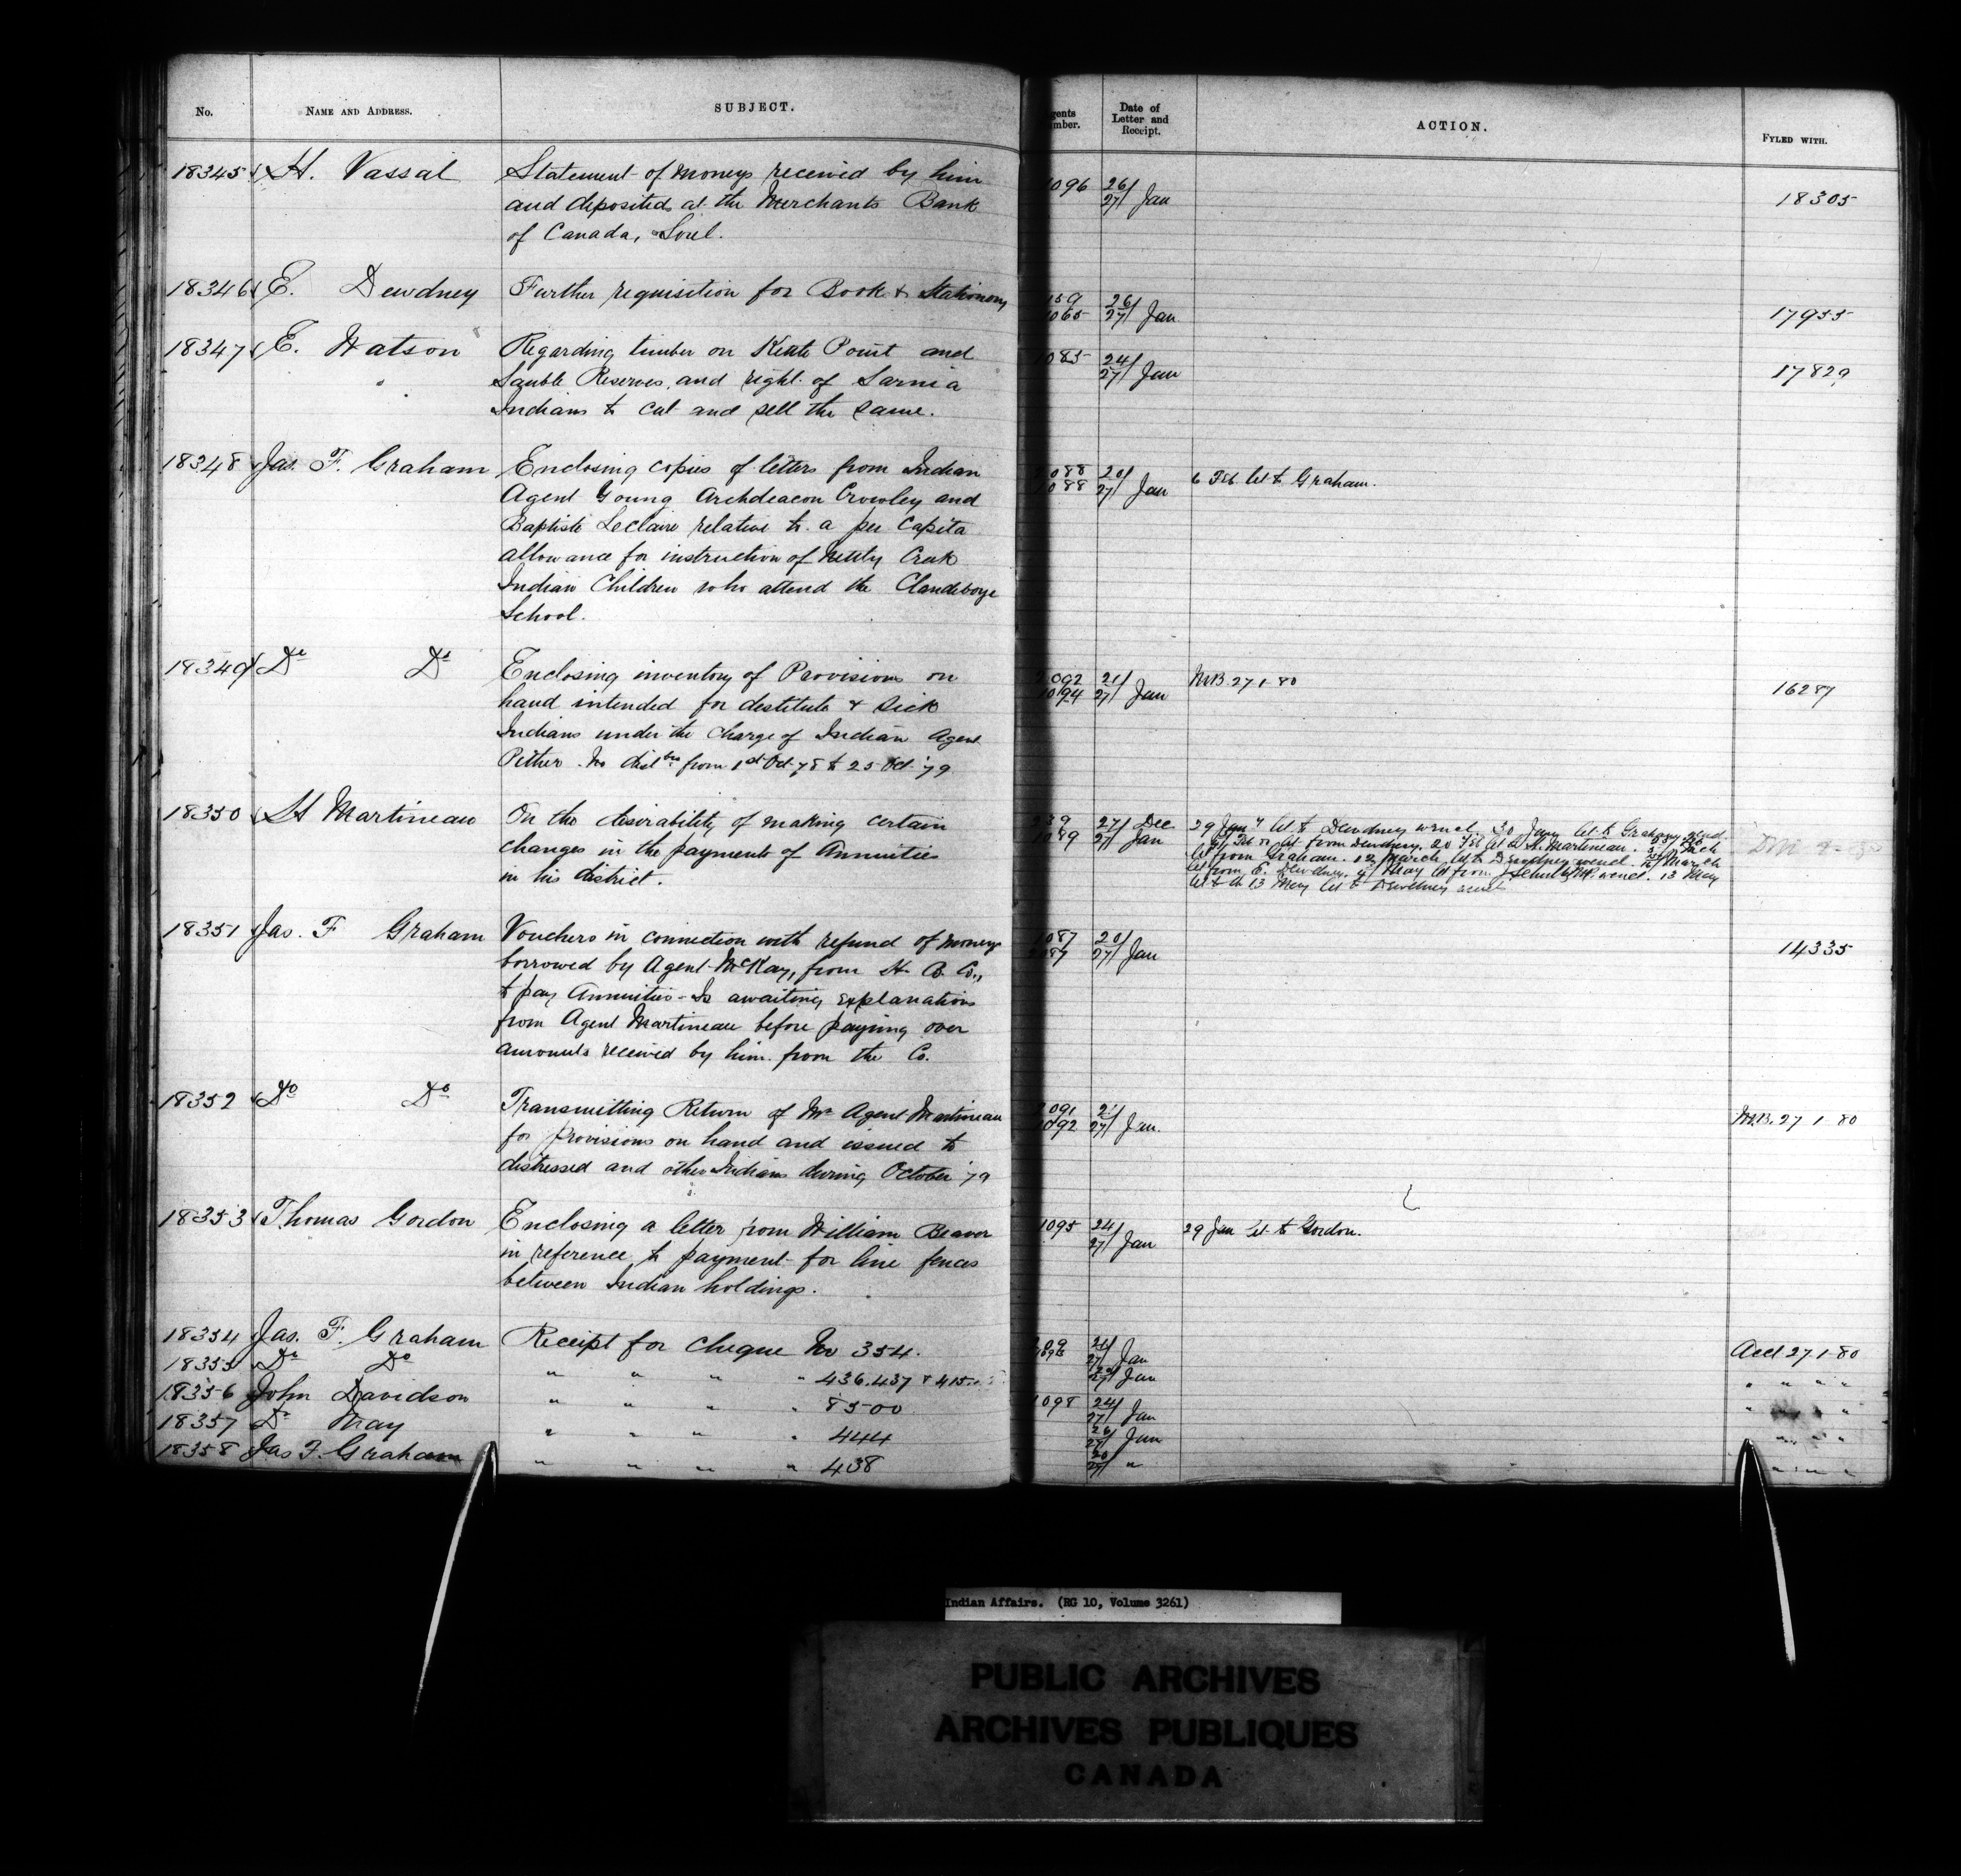 No. NAME AND ADDRESS. SUBJECT. Date of Letter and Receipt. ACTION. FYLED WITH.
18345 H. Vassal Statement of moneys received by him 1096 26/27 Jan 18305
and deposited at the Merchants Bank
of Canada, Sorel.
18346 E. Dewdney Further requisition for Book & Stationery 26/27 Jan 17955
18347 E. Watson Regarding timber on Kettle Point and 1085 24/27 Jan 17829
Sauble Reserves, and right of Sarnia
Indians to cut and sell the same.
18348 Jas. F. Graham Enclosing copies of letters from Indian 1088 20/27 Jan 6 Feb let to Graham.
Agent Young Archdeacon Crowley and
Baptiste Leclaire relative to a per Capita
allowance for instruction of Netley Creek
Indian Children who attend the Clandeboye
School.
18349 Do Do Enclosing inventory of Provisions on 1094 21/27 Jan M.B. 27 1 80 16287
hand intended for destitute & sick
Indians under the charge of Indian Agent
Pither. No distbn from 1st Oct 78 to 25 Oct '79
18350 H Martineau On the desirability of making certain 1089 27/ Dec 27/ Jan 29 Jany let to Dewdney wencl. 30 Jany let to Graham
changes in the payments of Annuities let from Dewdney. 20 Feb let to H. Martineau.
in his district. let from Graham. 12 March let to Dewdney wencl. March
let from E. Dewdney. May let from J Schultz MP. wencl. 13 May
13 May let to Dewdney
18351 Jas. F Graham Vouchers in connection with refund of moneys 1087 20/27 Jan 14335
borrowed by Agent McKay, from H. B. Co.,
to pay Annuities - Is awaiting explanations
from Agent Martineau before paying over
amounts received by him from the Co.
18352 Do Do Transmitting Return of Mr Agent Martineau 1092 21/27 Jan. M.B. 27 1 80
for provisions on hand and issued to
distressed and other Indians during October '79
18353 Thomas Gordon Enclosing a letter from William Beaver 1095 24/27 Jan 29 Jan let to Gordon.
in reference to payment for line fences
between Indian holdings.
18354 Jas. F. Graham Receipt for cheque No 354. 21/27 Jan Acct 27 1 80
18355 Do Do " " " " 436.437 & 415 27 Jan " " " "
18356 John Davidson " " " " 8500 1098 24/27 Jan " "
18357 Dr May " " " " 444 26/27 Jan " " " "
18358 Jas F. Graham " " " " 438 20/27 " " " " "
Indian Affairs. (RG 10, Volume 3261)
PUBLIC ARCHIVES
ARCHIVES PUBLIQUES
CANADA